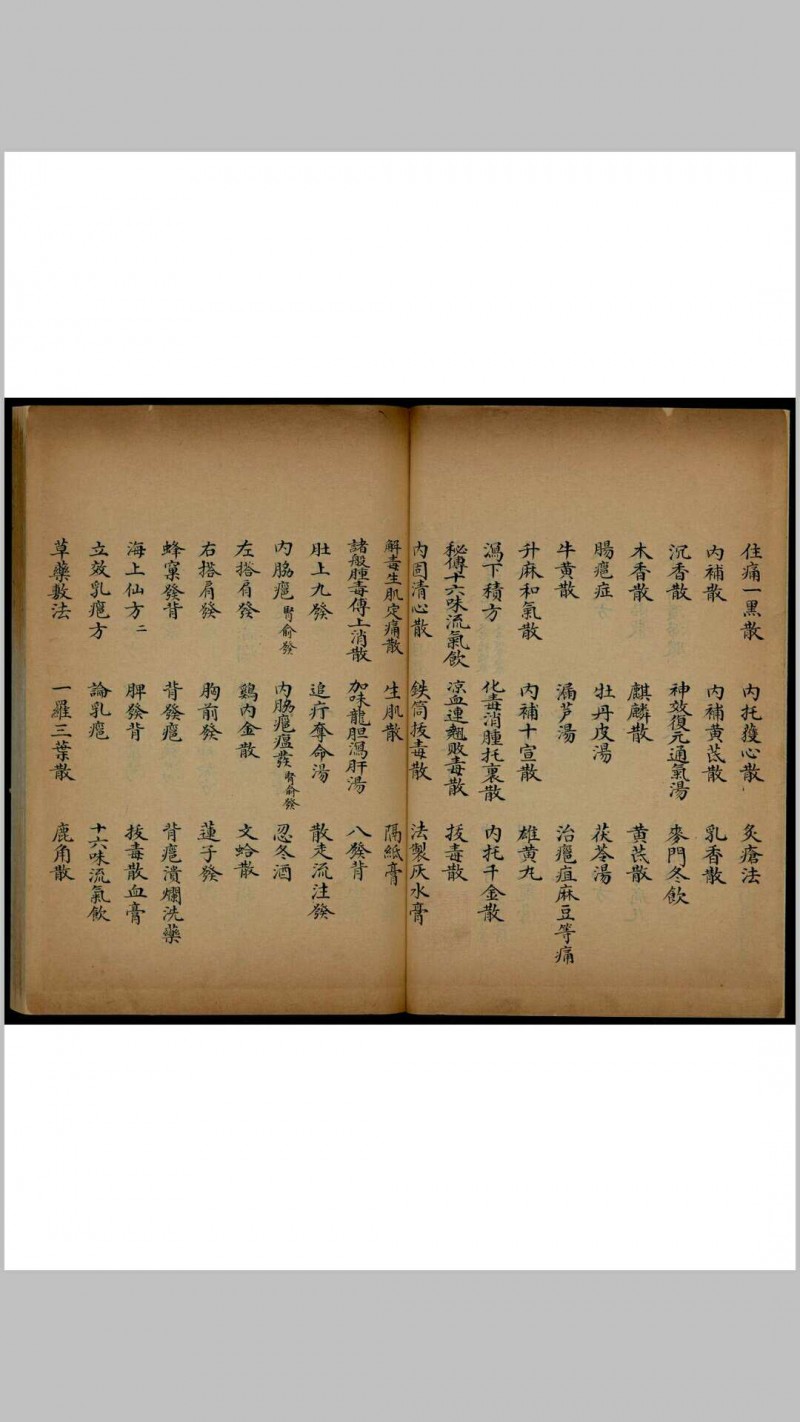 住痛一黑散　內托護心散　灸瘡法
內補散　內補黃茋散　乳香散
沉香散　神效復元通氣湯　麥門冬飲
木香散　麒麟散　黃茋散
腸癰症　牡丹皮湯　茯苓湯
牛黃散　漏芦湯　治癰疽麻豆等痛
升麻和氣散　內補十宣散　雄黃丸
瀉下積方　化毒消腫托裏散　內托千金散
秘傳十六味流氣飲　凉血連翹敗毒散　拔毒散
內固清心散　鉄筒拔毒散　法製灰水膏
解毒生肌定痛散　生肌散　隔紙膏
諸般腫毒傅上消散　加味龍胆瀉肝湯　八發背
肚上九發　追疔奪命湯　散走流注發
內脇癰 腎俞發　內脇癰瘟發 腎俞發　忍冬酒
左搭肩發　鷄內金散　文蛤散
右搭肩發　胸前發　蓮子發
蜂窠發背　背發癰　背癰潰爛洗藥
海上仙方 二　脾發背　拔毒散血膏
立效乳癰方　論乳癰　十六味流氣飲
草藥敷法　一羅三葉散　鹿角散